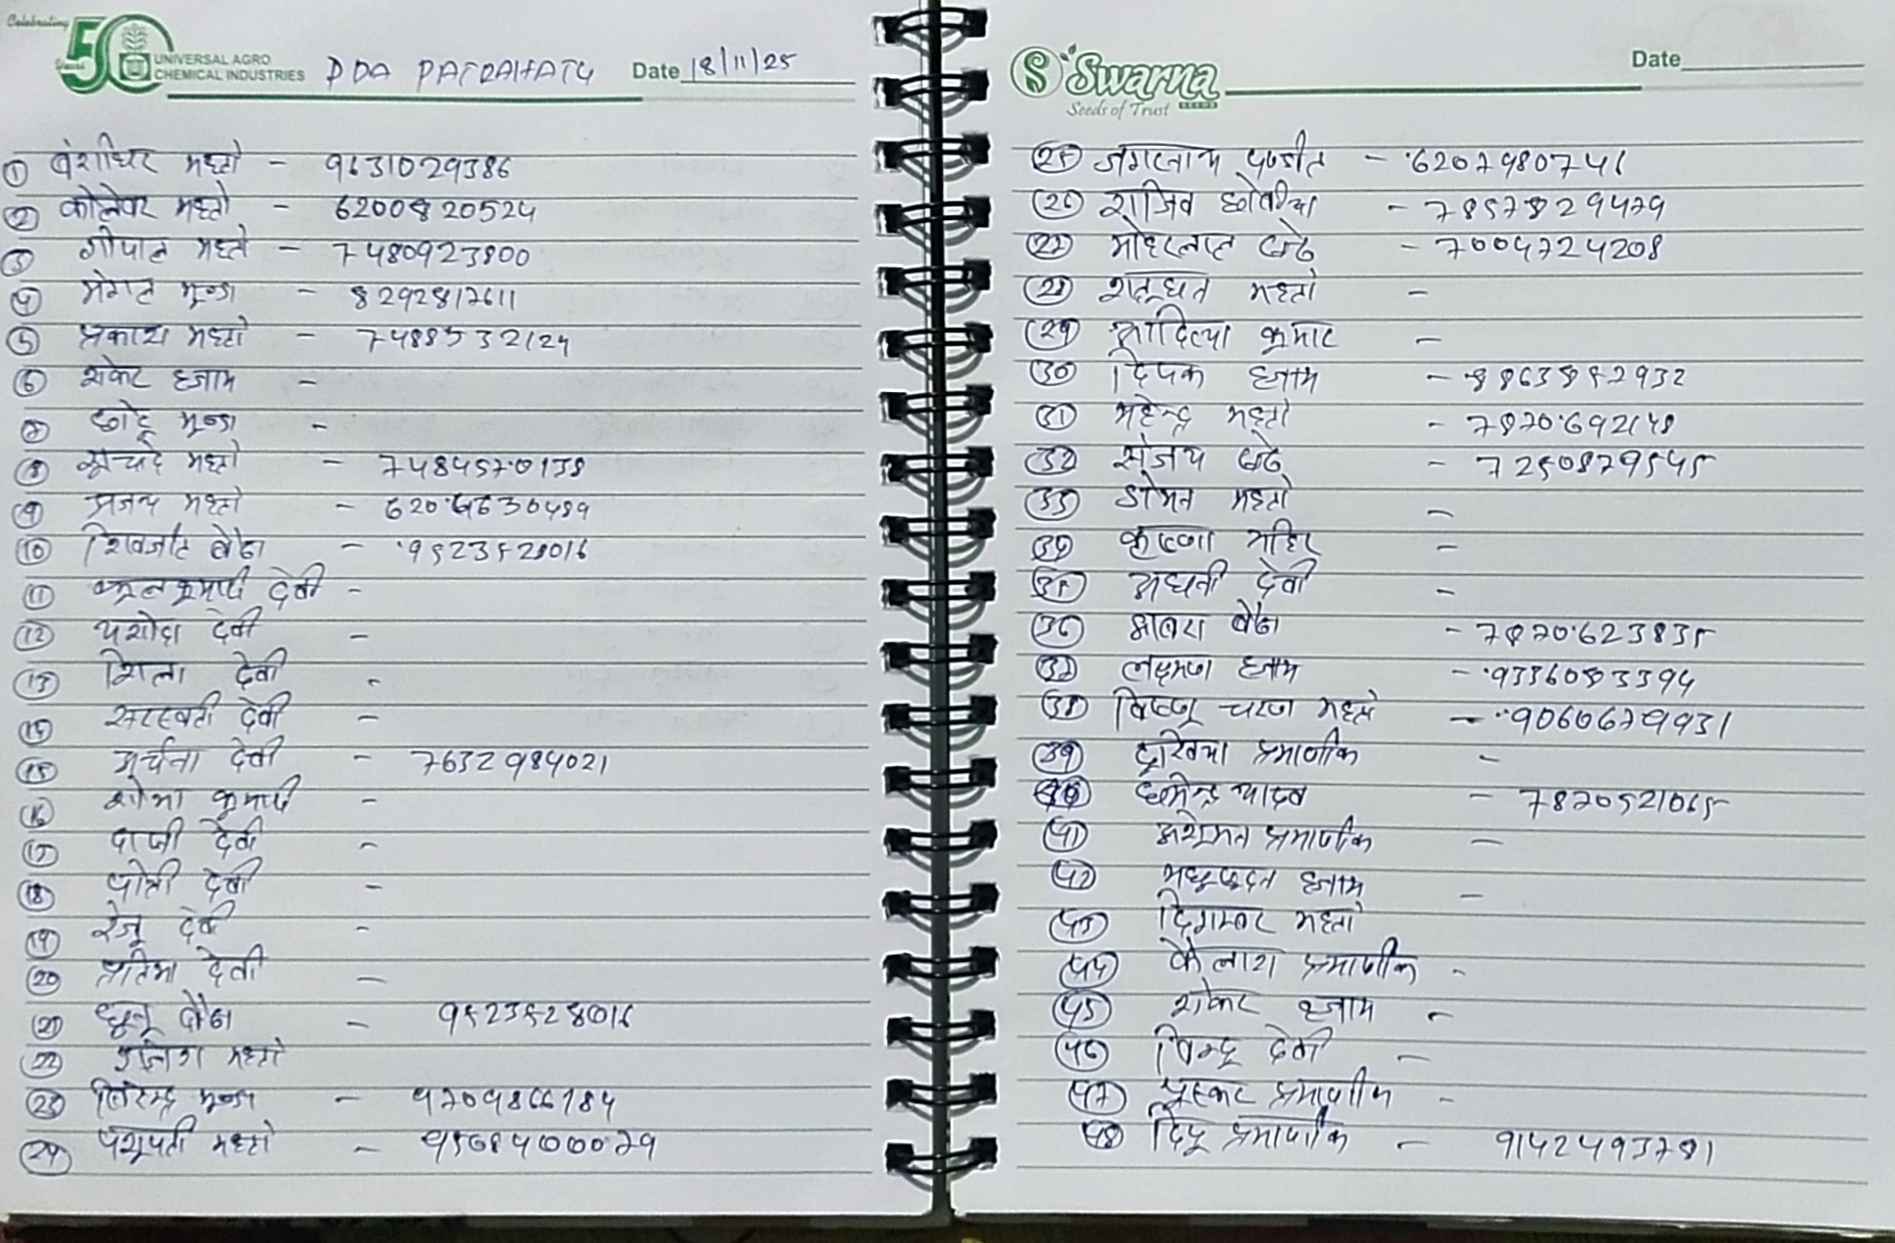 Celebrating
50 Years
UNIVERSAL AGRO
CHEMICAL INDUSTRIES
PDA PATRAHATU Date 18/11/25
① बंशीधर महतो - 9631029386
② महतो - 6200820524
③ गोपाल महतो - 7480923800
④ मंगल मुण्डा - 8292817611
⑤ प्रकाश महतो - 7488532124
⑥ शंकर हजाम -
⑦ छोटू मुण्डा -
⑧ महतो - 7484570138
⑨ अजय महतो -
⑩ बेदिया - 9523528016
⑪ फुलकुमारी देवी -
⑫ यशोदा देवी -
⑬ शिला देवी -
⑭ सरस्वती देवी -
⑮ अर्चना देवी - 7632984021
⑯ शोभा कुमारी -
⑰ देवी -
⑱ देवी -
⑲ रंजू देवी -
⑳ प्रतिमा देवी -
㉑ - 9523528016
㉒ महतो
㉓ मुण्डा - 9709866184
㉔ पशुपती महतो -
Swarna
Seeds of Trust SEEDS
Date
㉕ जगरनाथ पण्डीत - 6207980746
㉖ राजिव - 7857829479
㉗ मोहरलाल - 7004724208
㉘ शत्रुघन महतो -
㉙ आदित्या कुमार -
㉚ दिपक हजाम - 8863852932
㉛ महेन्द्र महतो - 7870692148
㉜ संजय - 7250879545
㉝ डोमन महतो -
㉞ कृष्णा -
㉟ देवी -
㊱ - 7870623835
㊲ लक्ष्मण हजाम - 9336083394
㊳ विष्णु चरण महतो - 9060679931
㊴ प्रमाणीक -
㊵ धर्मेन्द्र यादव - 7870521065
㊶ प्रमाणीक -
㊷ मधुसुदन हजाम -
㊸ दिगम्बर महतो
㊹ कैलाश प्रमाणीक -
㊺ शंकर हजाम -
㊻ बिन्दू देवी -
㊼ प्रमाणीक -
㊽ दिपू प्रमाणीक - 9142493781